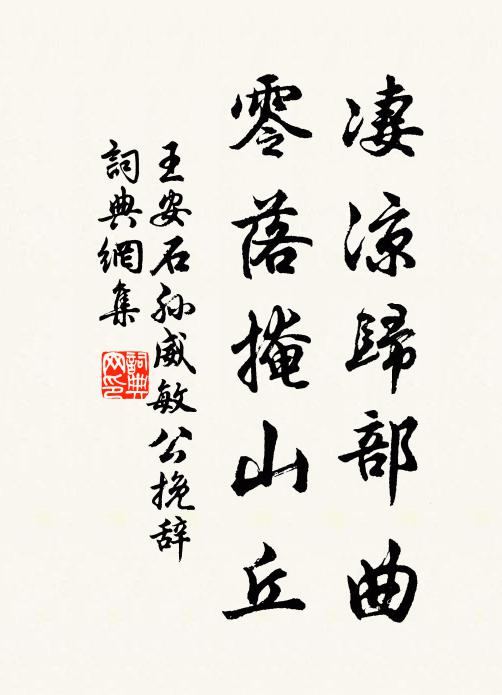 凄涼歸部曲
零落掩山丘
王安石孙威敏公挽辞
詞典網集
詞典网印